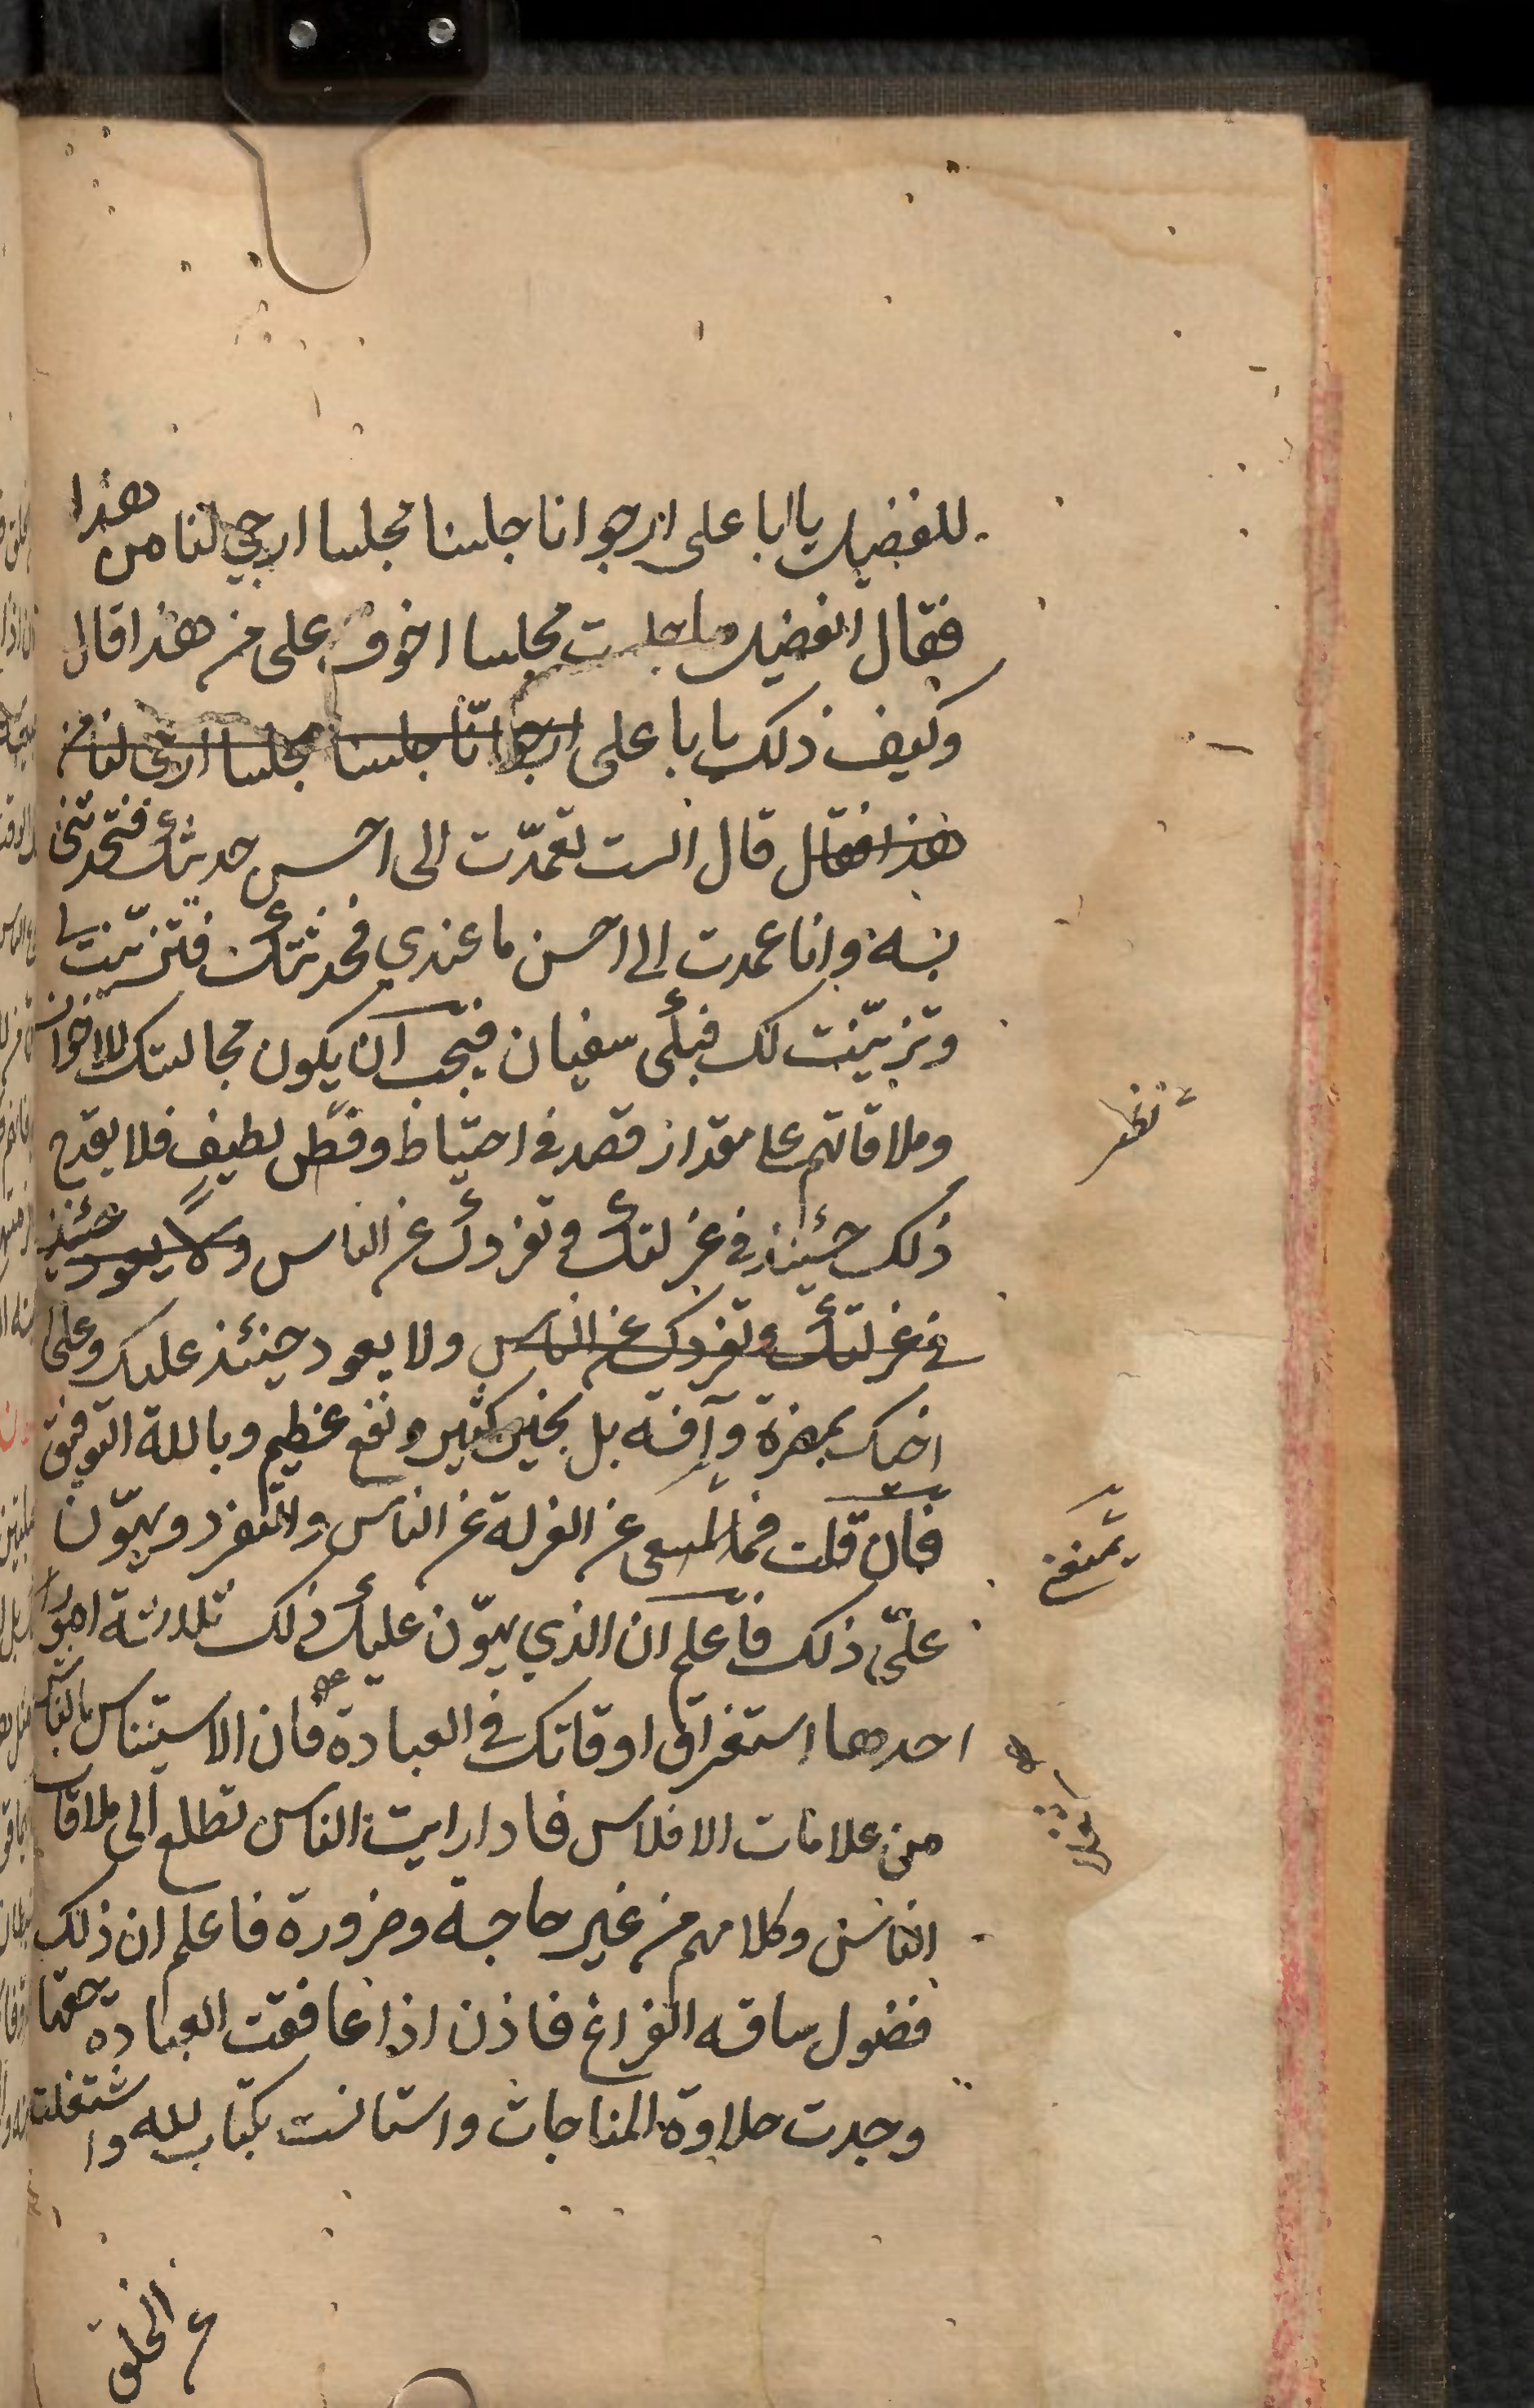 للفضيل يا ابا على ارجوا انا جلسنا مجلسا ارجي لنا من هذا
فقال الفضيل ما جلست مجلسا اخوف على من هذا قال
وكيف ذلك يا با على ارجوا انّا جلسنا مجلسا ارجى لنا من
هذا فقال قال الست تعمدّت الى احسن حديثك فتحدثنى
به وانا عمدت الى احسن ما عندي فحدثتك فتزيّنت لى
وتزيّنت لك فبكى سفيان فيجب ان يكون مجالستك للاخوان
وملاقاتهم على مقدار قصد فى احتياط وفطر لطيف فلا يقدح
ذلك حينئذ فى عزلتك وتفردك عن الناس ولا يعود حينئذ
فى عزلتك وتفردك عن الناس ولا يعود حينئذ عليك وعلى
اخيك بمضرة وآفة بل بخير كثير ونفع عظيم وبالله التوفيق
فان قلت فما المسعى عن العزلة عن الناس والتفرد ويهوّن
علىّ ذلك فاعلم ان الذي يهوّن عليك ذلك ثلاثة امور
احدها استغراق اوقاتك فى العبادة فان الاستيناس بالناس
من علامات الافلاس فاذا رايت الناس تطلع الى ملاقات
الناس وكلامهم من غير حاجة وضرورة فاعلم ان ذلك
فضول ساقه الفراغ فاذن اذا عافقت العبادة حقها
وجدت حلاوة المناجات واستانست بكتاب لله واشتغلت
نظر
عن الخلق